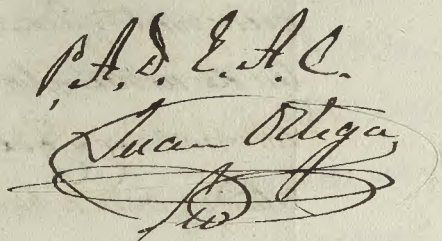 P. A. D. E. A. C.
Juan Ortega